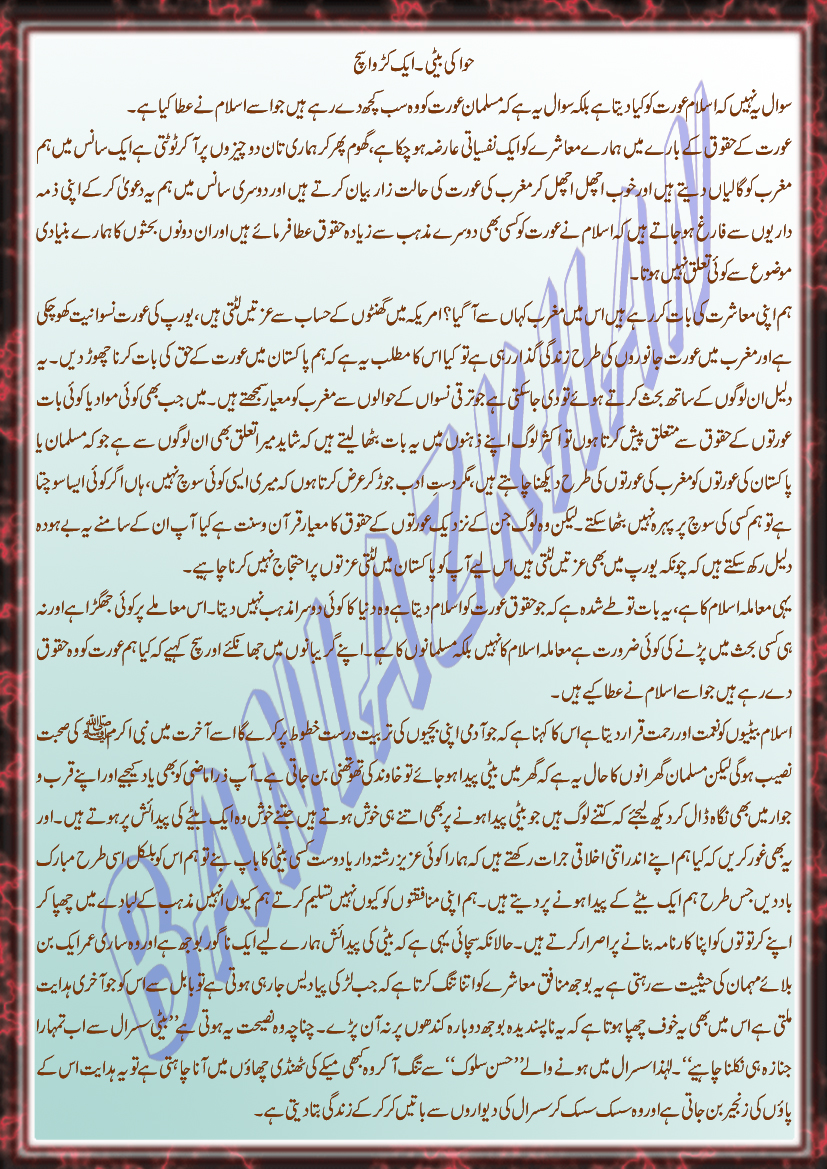 حوا کی بیٹی۔ ایک کڑوا سچ
سوال یہ نہیں کہ اسلام عورت کو کیا دیتا ہے بلکہ سوال یہ ہے کہ مسلمان عورت کو وہ سب کچھ دے رہے ہیں جو اسے اسلام نے عطا کیا ہے۔
عورت کے حقوق کے بارے میں ہمارے معاشرے کو ایک نفسیاتی عارضہ ہو چکا ہے، گھوم پھر کر ہماری تان دو چیزوں پر آ کر ٹوٹتی ہے ایک سانس میں ہم
مغرب کو گالیاں دیتے ہیں اور خوب اچھل اچھل کر مغرب کی عورت کی حالت زار بیان کرتے ہیں اور دوسری سانس میں ہم یہ دعویٰ کر کے اپنی ذمہ
داریوں سے فارغ ہو جاتے ہیں کہ اسلام نے عورت کو کسی بھی دوسرے مذہب سے زیادہ حقوق عطا فرمائے ہیں اور ان دونوں بحثوں کا ہمارے بنیادی
موضوع سے کوئی تعلق نہیں ہوتا۔
ہم اپنی معاشرت کی بات کر رہے ہیں اس میں مغرب کہاں سے آ گیا؟ امریکہ میں گھنٹوں کے حساب سے عزتیں لٹتی ہیں، یورپ کی عورت نسوانیت کھو چکی
ہے اور مغرب میں عورت جانوروں کی طرح زندگی گذار رہی ہے تو کیا اس کا مطلب یہ ہے کہ ہم پاکستان میں عورت کے حق کی بات کرنا چھوڑ دیں۔ یہ
دلیل ان لوگوں کے ساتھ بحث کرتے ہوئے تو دی جا سکتی ہے جو ترقی نسواں کے حوالوں سے مغرب کو معیار سمجھتے ہیں۔ میں جب بھی کوئی مواد یا کوئی بات
عورتوں کے حقوق سے متعلق پیش کرتا ہوں تو اکثر لوگ اپنے ذہنوں میں یہ بات بٹھا لیتے ہیں کہ شاید میرا تعلق بھی ان لوگوں سے ہے جو کہ مسلمان یا
پاکستان کی عورتوں کو مغرب کی عورتوں کی طرح دیکھنا چاہتے ہیں، مگر دستِ ادب جوڑ کر عرض کرتا ہوں کہ میری ایسی کوئی سوچ نہیں، ہاں اگر کوئی ایسا سوچتا
ہے تو ہم کسی کی سوچ پر پہرہ نہیں بٹھا سکتے۔ لیکن وہ لوگ جن کے نزدیک عورتوں کے حقوق کا معیار قرآن و سنت ہے کیا آپ ان کے سامنے یہ بے ہودہ
دلیل رکھ سکتے ہیں کہ چونکہ یورپ میں بھی عزتیں لٹتی ہیں اس لیے آپ کو پاکستان میں لٹتی عزتوں پر احتجاج نہیں کرنا چاہیے۔
یہی معاملہ اسلام کا ہے، یہ بات تو طے شدہ ہے کہ جو حقوق عورت کو اسلام دیتا ہے وہ دنیا کا کوئی دوسرا مذہب نہیں دیتا۔ اس معاملے پر کوئی جھگڑا ہے اور نہ
ہی کسی بحث میں پڑنے کی کوئی ضرورت ہے معاملہ اسلام کا نہیں بلکہ مسلمانوں کا ہے۔ اپنے گریبانوں میں جھانکئے اور سچ کہیے کہ کیا ہم عورت کو وہ حقوق
دے رہے ہیں جو اسے اسلام نے عطا کیے ہیں۔
اسلام بیٹیوں کو نعمت اور رحمت قرار دیتا ہے اس کا کہنا ہے کہ جو آدمی اپنی بچیوں کی تربیت درست خطوط پر کرے گا اسے آخرت میں نبی اکرم ﷺ کی صحبت
نصیب ہو گی لیکن مسلمان گھرانوں کا حال یہ ہے کہ گھر میں بیٹی پیدا ہو جائے تو خاوند کی تھوتھنی بن جاتی ہے۔ آپ ذرا ماضی کو بھی یاد کیجیے اور اپنے قرب و
جوار میں بھی نگاہ ڈال کر دیکھ لیجئے کہ کتنے لوگ ہیں جو بیٹی پیدا ہونے پر بھی اتنے ہی خوش ہوتے ہیں جتنے خوش وہ ایک بیٹے کی پیدائش پر ہوتے ہیں۔ اور
یہ بھی غور کریں کہ کیا ہم اپنے اندر اتنی اخلاقی جرات رکھتے ہیں کہ ہمارا کوئی عزیز رشتہ دار یا دوست کسی بیٹی کا باپ بنے تو ہم اس کو بلکل اسی طرح مبارک
باد دیں جس طرح ہم ایک بیٹے کے پیدا ہونے پر دیتے ہیں۔ ہم اپنی منافقتوں کو کیوں نہیں تسلیم کرتے ہم کیوں انہیں مذہب کے لبادے میں چھپا کر
اپنے کرتوتوں کو اپنا کارنامہ بنانے پر اصرار کرتے ہیں۔ حالانکہ سچائی یہی ہے کہ بیٹی کی پیدائش ہمارے لیے ایک ناگوار بوجھ ہے اور وہ ساری عمر ایک بن
بلائے مہمان کی حیثیت سے رہتی ہے یہ بوجھ منافق معاشرے کو اتنا تنگ کرتا ہے کہ جب لڑکی پیا دیس جا رہی ہوتی ہے تو بابل سے اس کو جو آخری ہدایت
ملتی ہے اس میں بھی یہ خوف چھپا ہوتا ہے کہ یہ ناپسندیدہ بوجھ دوبارہ کندھوں پر نہ آن پڑے۔ چناچہ وہ نصیحت یہ ہوتی ہے ”بیٹی سسرال سے اب تمہارا
جنازہ ہی نکلنا چاہیے“۔ لہٰذا سسرال میں ہونے والے ”حسن سلوک“ سے تنگ آ کر وہ کبھی میکے کی ٹھنڈی چھاؤں میں آنا چاہتی ہے تو یہ ہدایت اس کے
پاؤں کی زنجیر بن جاتی ہے اور وہ سسک سسک کر سسرال کی دیواروں سے باتیں کر کر کے زندگی بتا دیتی ہے۔
BANIAZKHAN